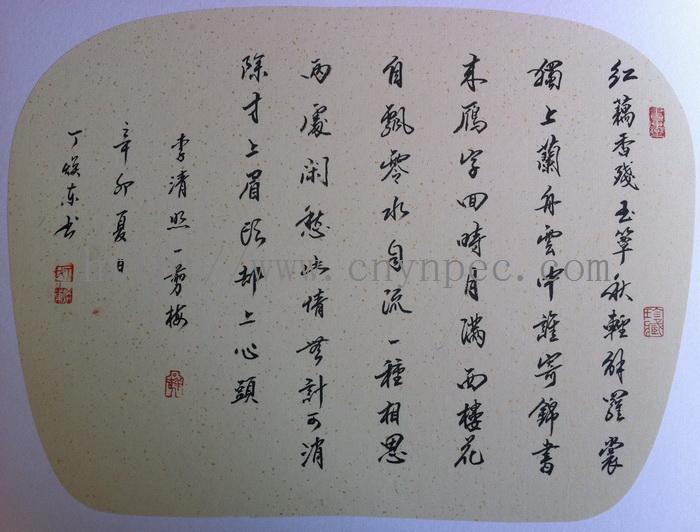 红藕香残玉簟秋輕解羅裳
獨上蘭舟雲中誰寄錦書
来鴈字回時月滿西樓花
自飄零水自流一種相思
兩處閑愁此情無計可消
除才上眉頭却上心頭
李清照一剪梅
辛卯夏日
丁焕东书
www.cnynpec.com